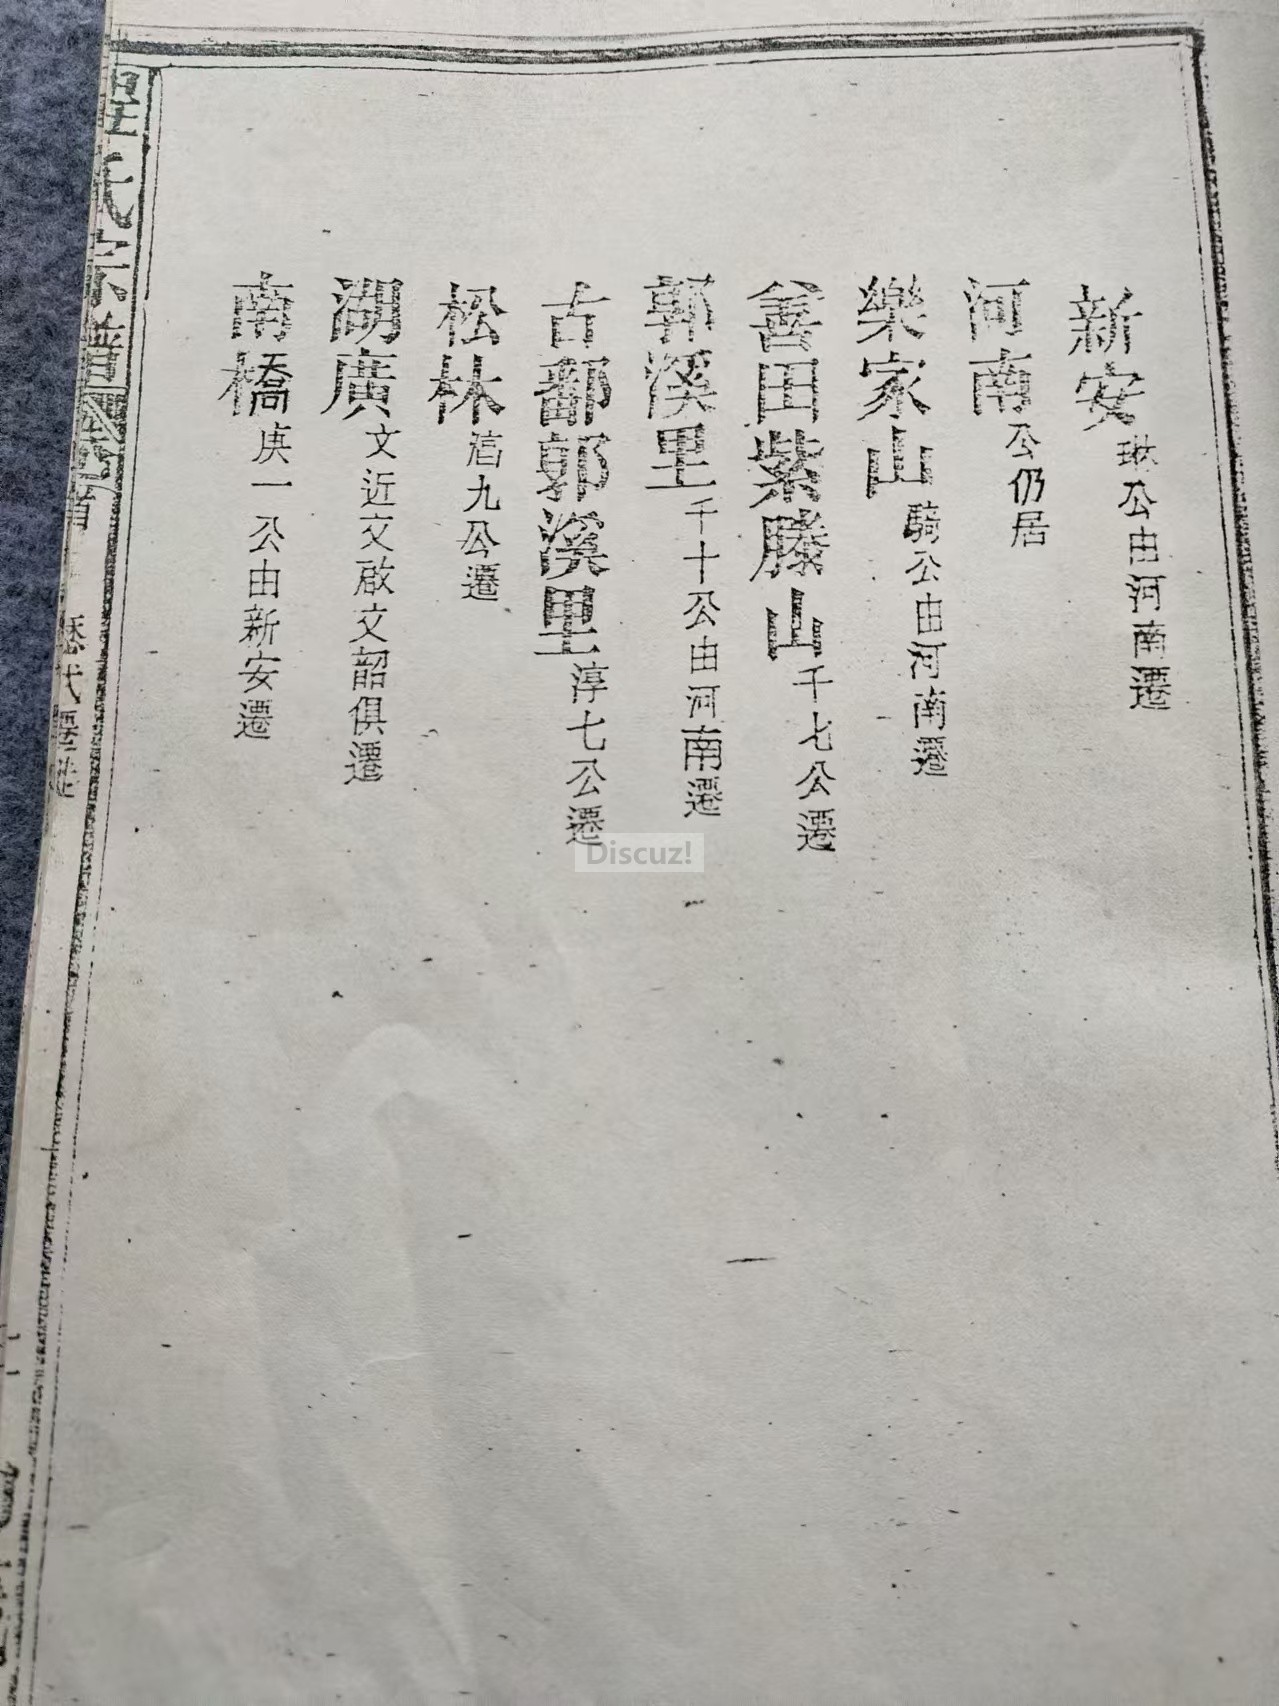 新安 琳公由河南遷
河南 公仍居
樂家山 騎公由河南遷
善田紫滕山 千七公遷
郭溪里 千十公由河南遷
古鄱郭溪里 淳七公遷
松林 九公遷
湖廣 文近文啟文韶俱遷
南橋 庚一公由新安遷
程氏宗譜 首 歷代遷
Discuz!